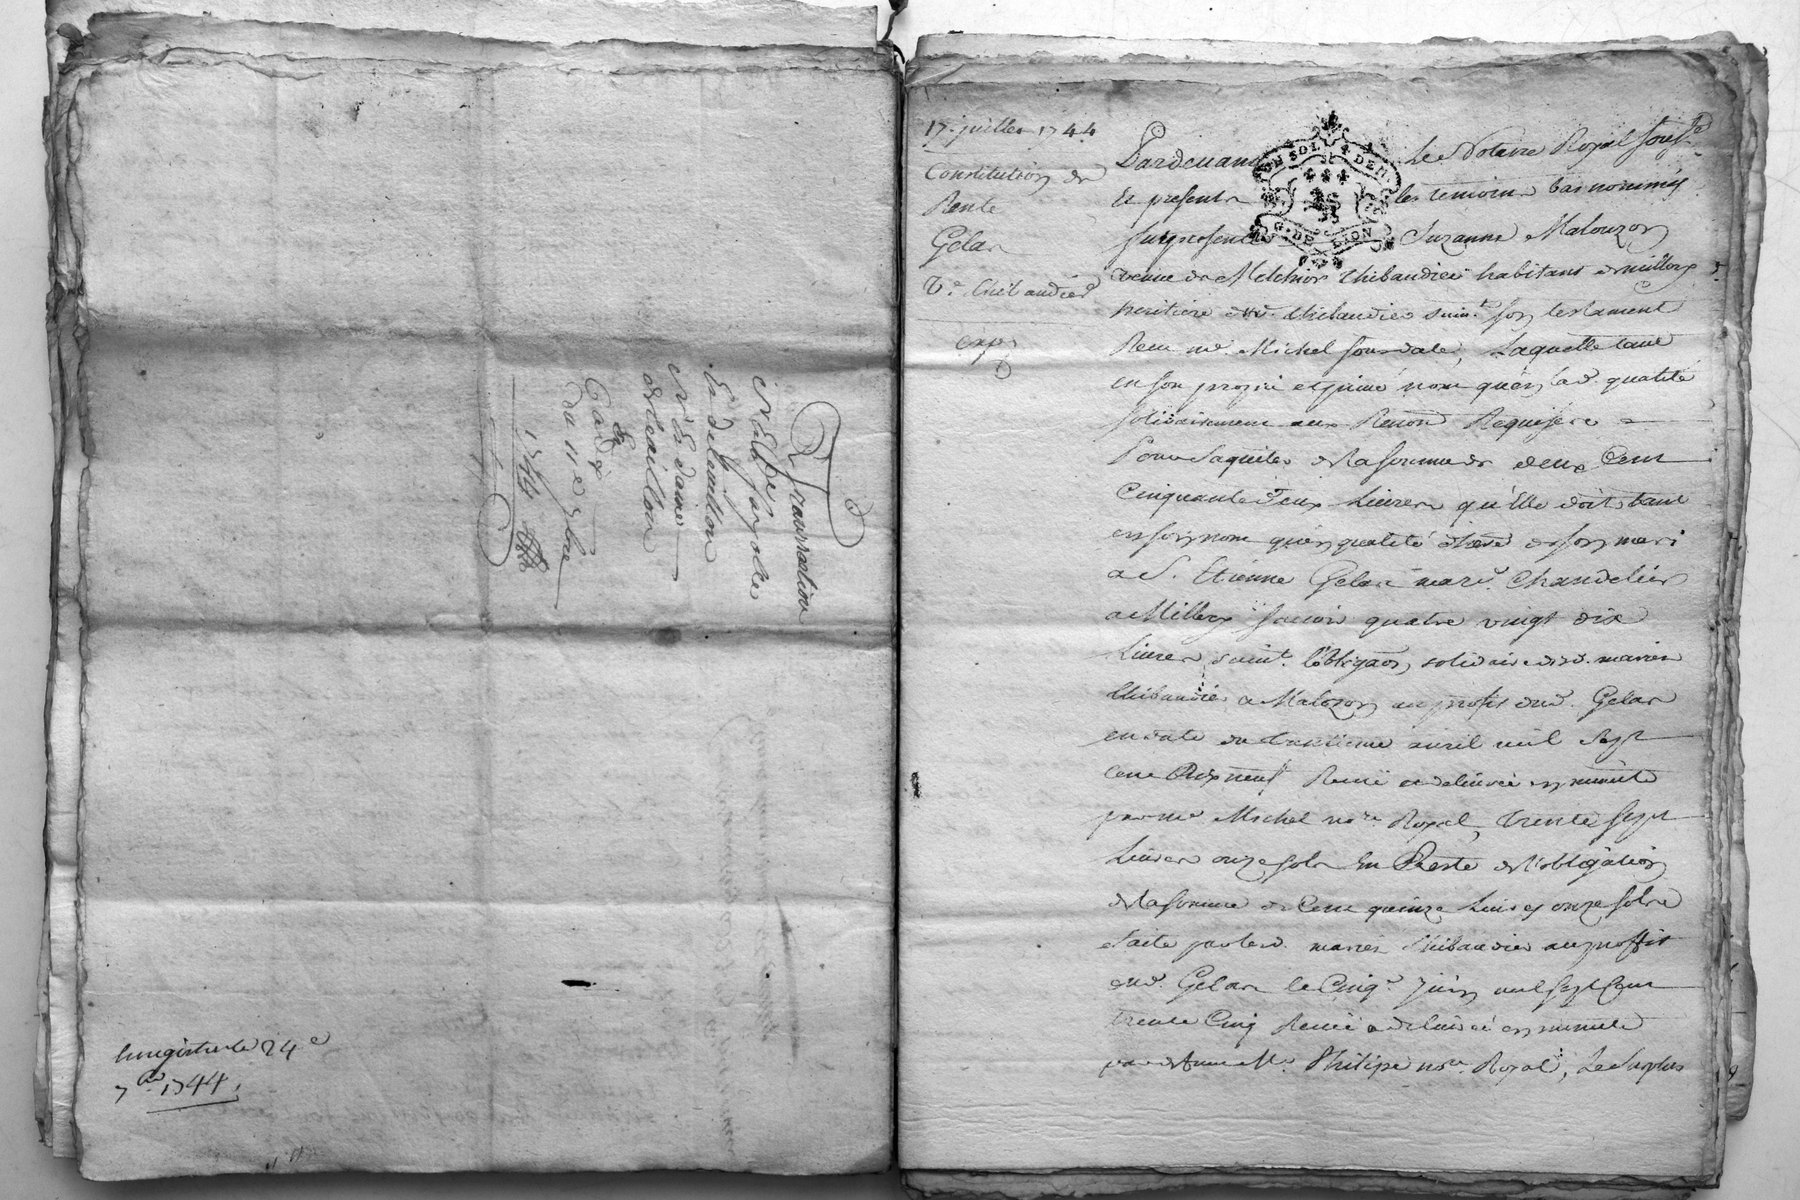 Transaction
En delauillon
N.e dame
de
du 11e 7bre
1744
Enregistré le 24e
7bre 1744.
17 juillet 1744
Constitution de
Rente
Gelas
Ve. Thibaudier
exp.
Pardeuant Le Notaire Royal sousse
Et presents les temoins bas nommés
fut presente Suzanne Malouzon
veuue de Melchior Thibaudier habitant de millery
heritiere dud. Thibaudier suiut. son testament
Receu me. Michel sousdate, Laquelle tant
en son propre et priué nom qu'en lad. qualité
solidairement aux Renon Requises
Pour Laquiter de la somme de deux Cent
Cinquante deux Liures qu'elle doit tant
en son nom qu'en qualité d'herre de son mari
a S. Etienne Gelas mard. Chandelier
a Millery sauoir quatre vingt dix
Liures suiut. l'obligaon solidaire desd. mariés
Thibaudier a Malozon au profit dud. Gelas
en date du trentieme auril mil sept
cent dix neuf Receue et deliurée en minute
par me Michel nore Royal, trente sept
Liures onze sols En Reste de l'obligation
de la somme de Cent quinze Liures onze sols
faite par lesd. mariés Thibaudier au proffit
dud. Gelas le Cinqe Juin mil sept Cent
trente Cinq Receue a deliurée en minute
par deffunt Me Philipe nore Royal, Le Surplus
G. DE LION